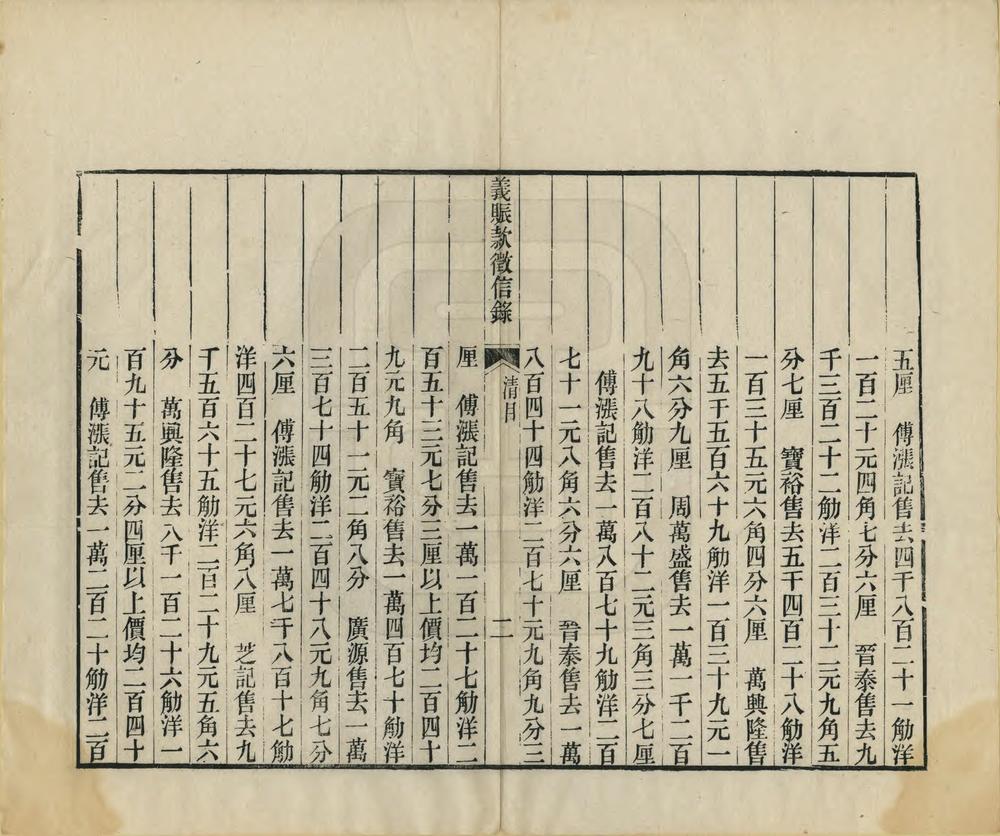 五厘　傅漲記售去四千八百二十一觔洋
一百二十元四角七分六厘　晉泰售去九
千三百二十二觔洋二百三十二元九角五
分七厘　寶裕售去五千四百二十八觔洋
一百三十五元六角四分六厘　萬興隆售
去五千五百六十九觔洋一百三十九元一
角六分九厘　周萬盛售去一萬一千二百
九十八觔洋二百八十二元三角三分七厘
傅漲記售去一萬八百七十九觔洋二百
七十一元八角六分六厘　晉泰售去一萬
八百四十四觔洋二百七十元九角九分三
義賑款徵信錄　清目　二
厘　傅漲記售去一萬一百二十七觔洋二
百五十三元七分三厘以上價均二百四十
九元九角　寶裕售去一萬四百七十觔洋
二百五十一元二角八分　廣源售去一萬
三百七十四觔洋二百四十八元九角七分
六厘　傅漲記售去一萬七千八百十七觔
洋四百二十七元六角八厘　芝記售去九
千五百六十五觔洋二百二十九元五角六
分　萬興隆售去八千一百二十六觔洋一
百九十五元二分四厘以上價均二百四十
元　傅漲記售去一萬二百二十觔洋二百